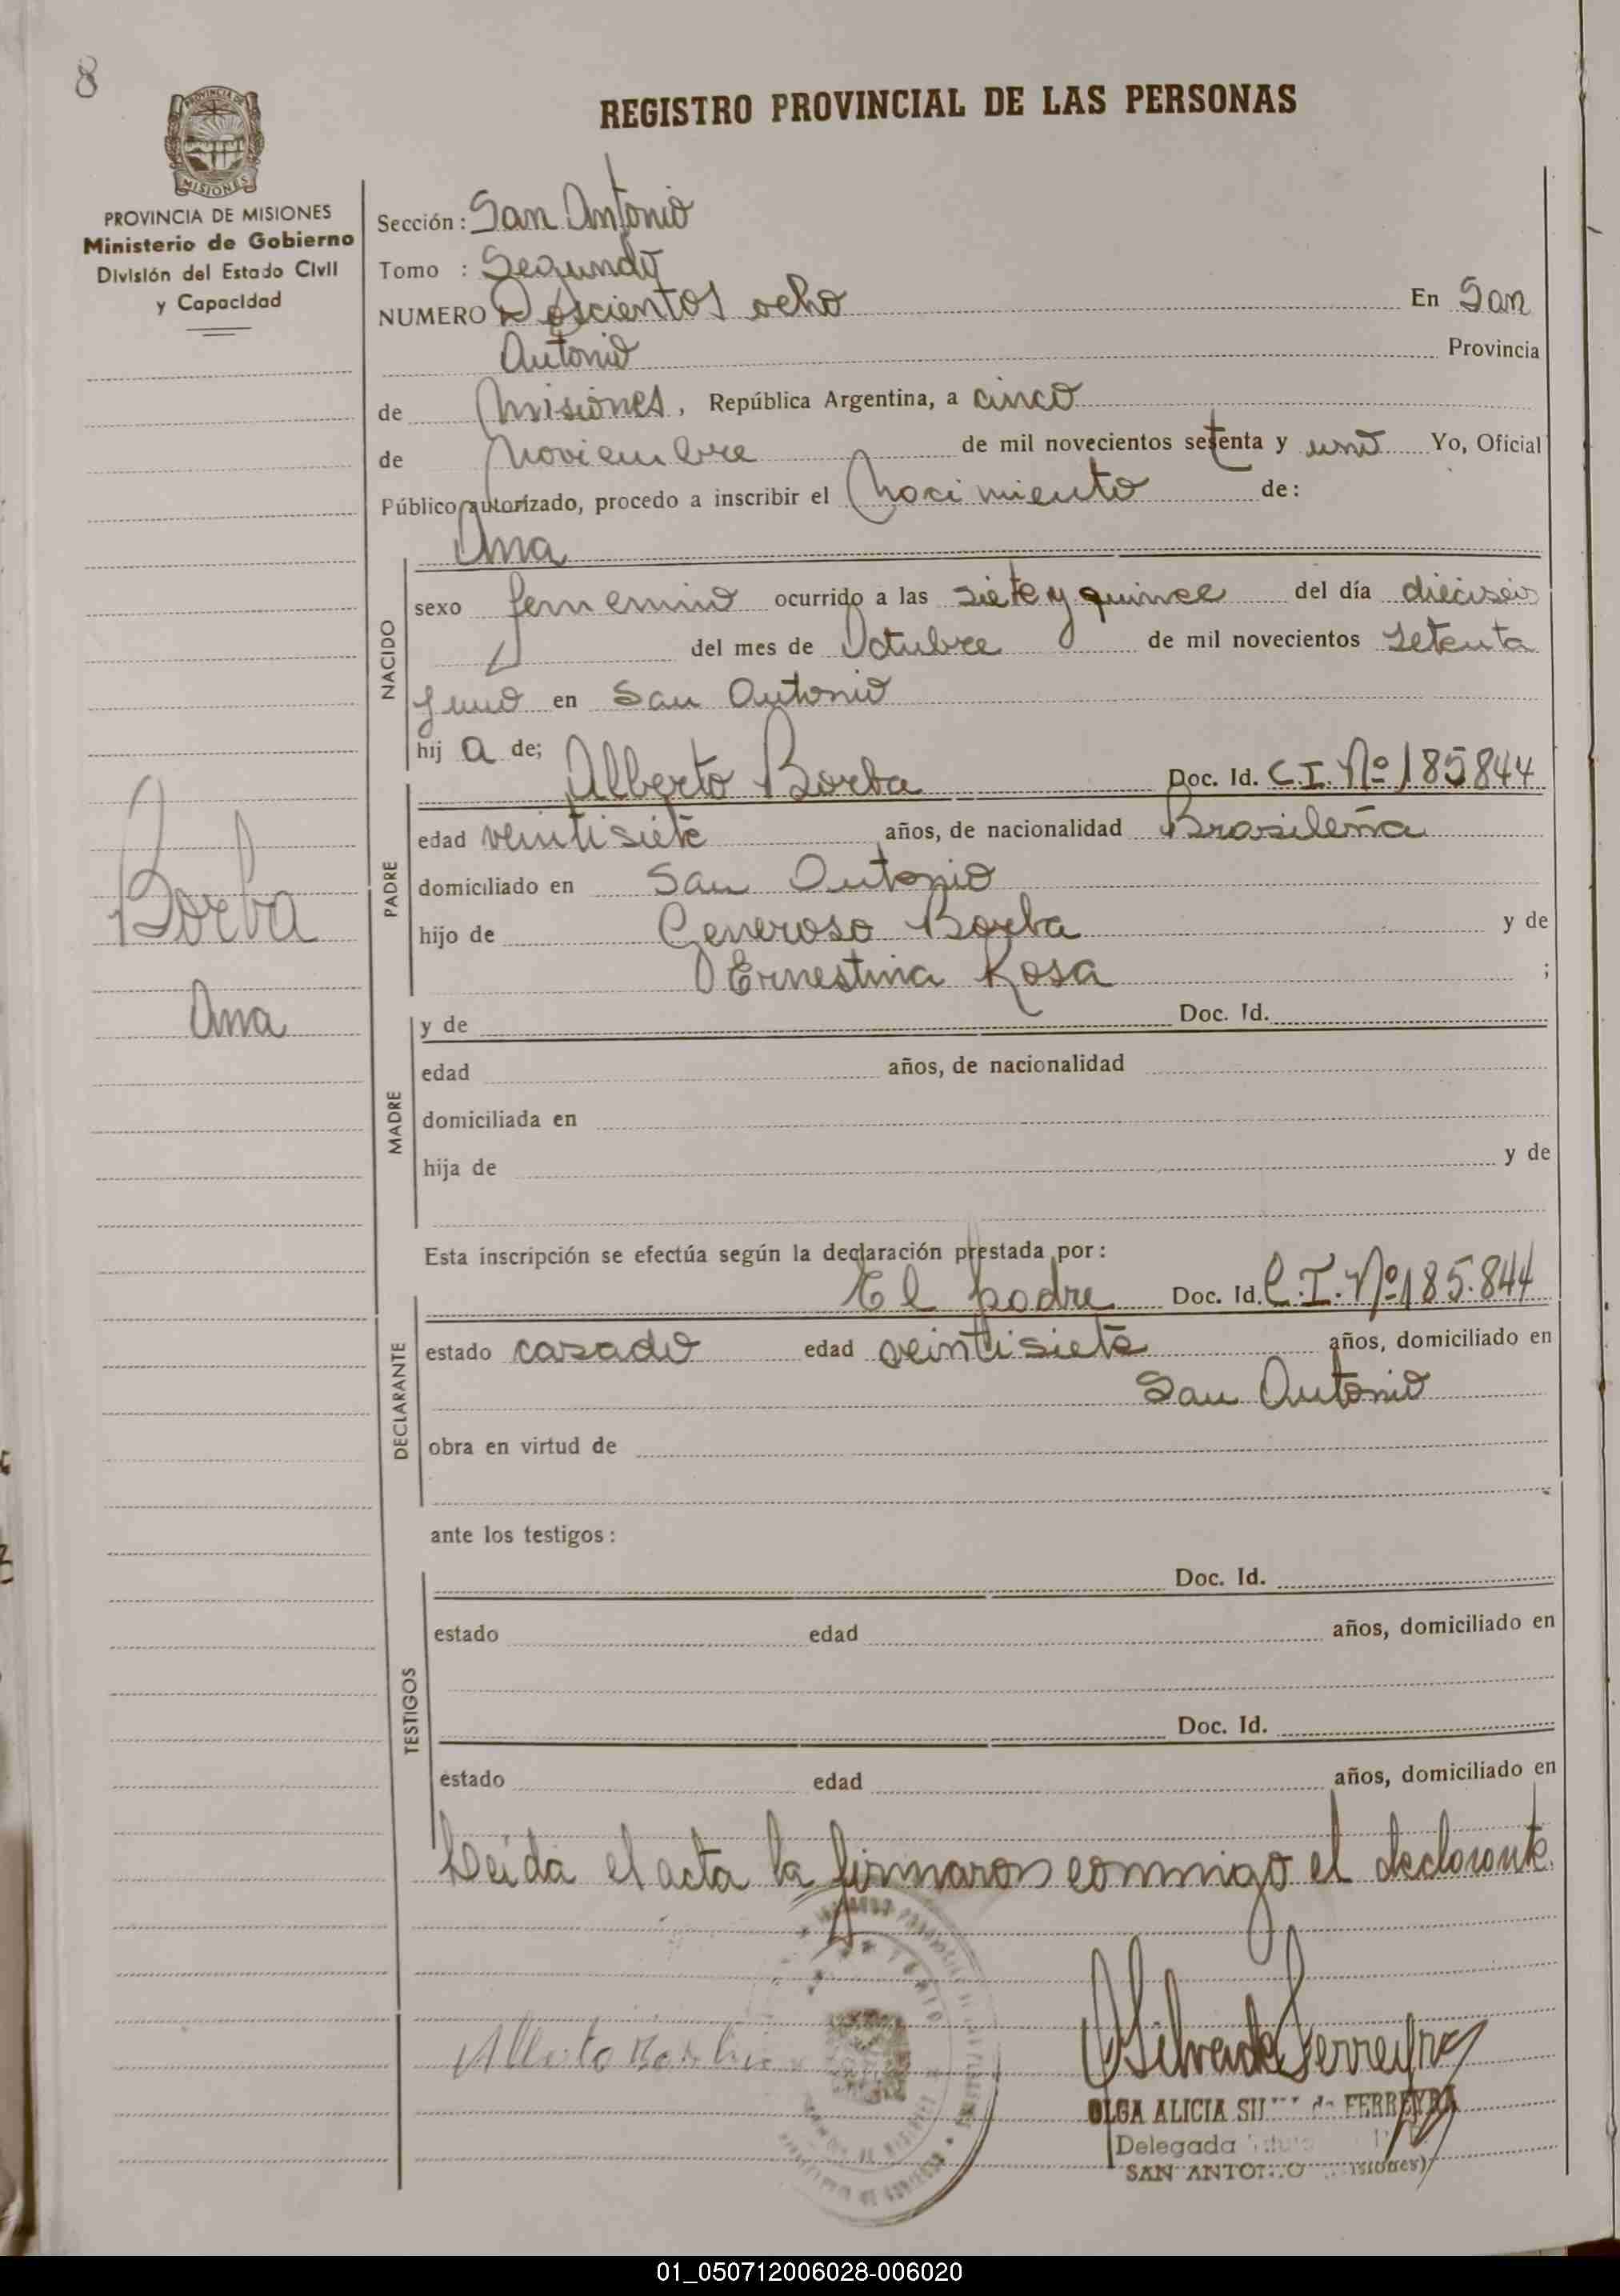 8
PROVINCIA DE
MISIONES
PROVINCIA DE MISIONES
Ministerio de Gobierno
División del Estado Civil
y Capacidad
REGISTRO PROVINCIAL DE LAS PERSONAS
Sección: San Antonio
Tomo : Segundo
NUMERO Doscientos ocho En San
Antonio Provincia
de Misiones, República Argentina, a cinco
de Noviembre de mil novecientos setenta y uno Yo, Oficial
Público autorizado, procedo a inscribir el Nacimiento de:
Ana
NACIDO
sexo femenino ocurrido a las siete y quince del día dieciseis
del mes de Octubre de mil novecientos setenta
y uno en San Antonio
hij a de; Alberto Borba Doc. Id. C.I. Nº 185844
PADRE
edad veintisiete años, de nacionalidad Brasileña
domiciliado en San Antonio
hijo de Generoso Borba y de
Ernestina Rosa ;
Borba
Ana
MADRE
y de Doc. Id.
edad años, de nacionalidad
domiciliada en
hija de y de
Esta inscripción se efectúa según la declaración prestada por:
El padre Doc. Id. C.I. Nº 185.844
DECLARANTE
estado casado edad veintisiete años, domiciliado en
San Antonio
obra en virtud de
ante los testigos:
TESTIGOS
Doc. Id.
estado edad años, domiciliado en
Doc. Id.
estado edad años, domiciliado en
Leída el acta la firmaron conmigo el declarante.
Alberto Borba
OLGA ALICIA de FERREYRA
Delegada
SAN ANTONIO (Misiones)
01_050712006028-006020